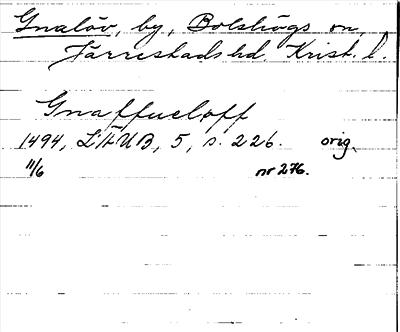 Gnalöv, by, Bolshögs sn,
Järrestads hd. Krist. l.
Gnaffueloff
1494, LÄUB, 5, s. 226. orig.
11/6 nr 276.